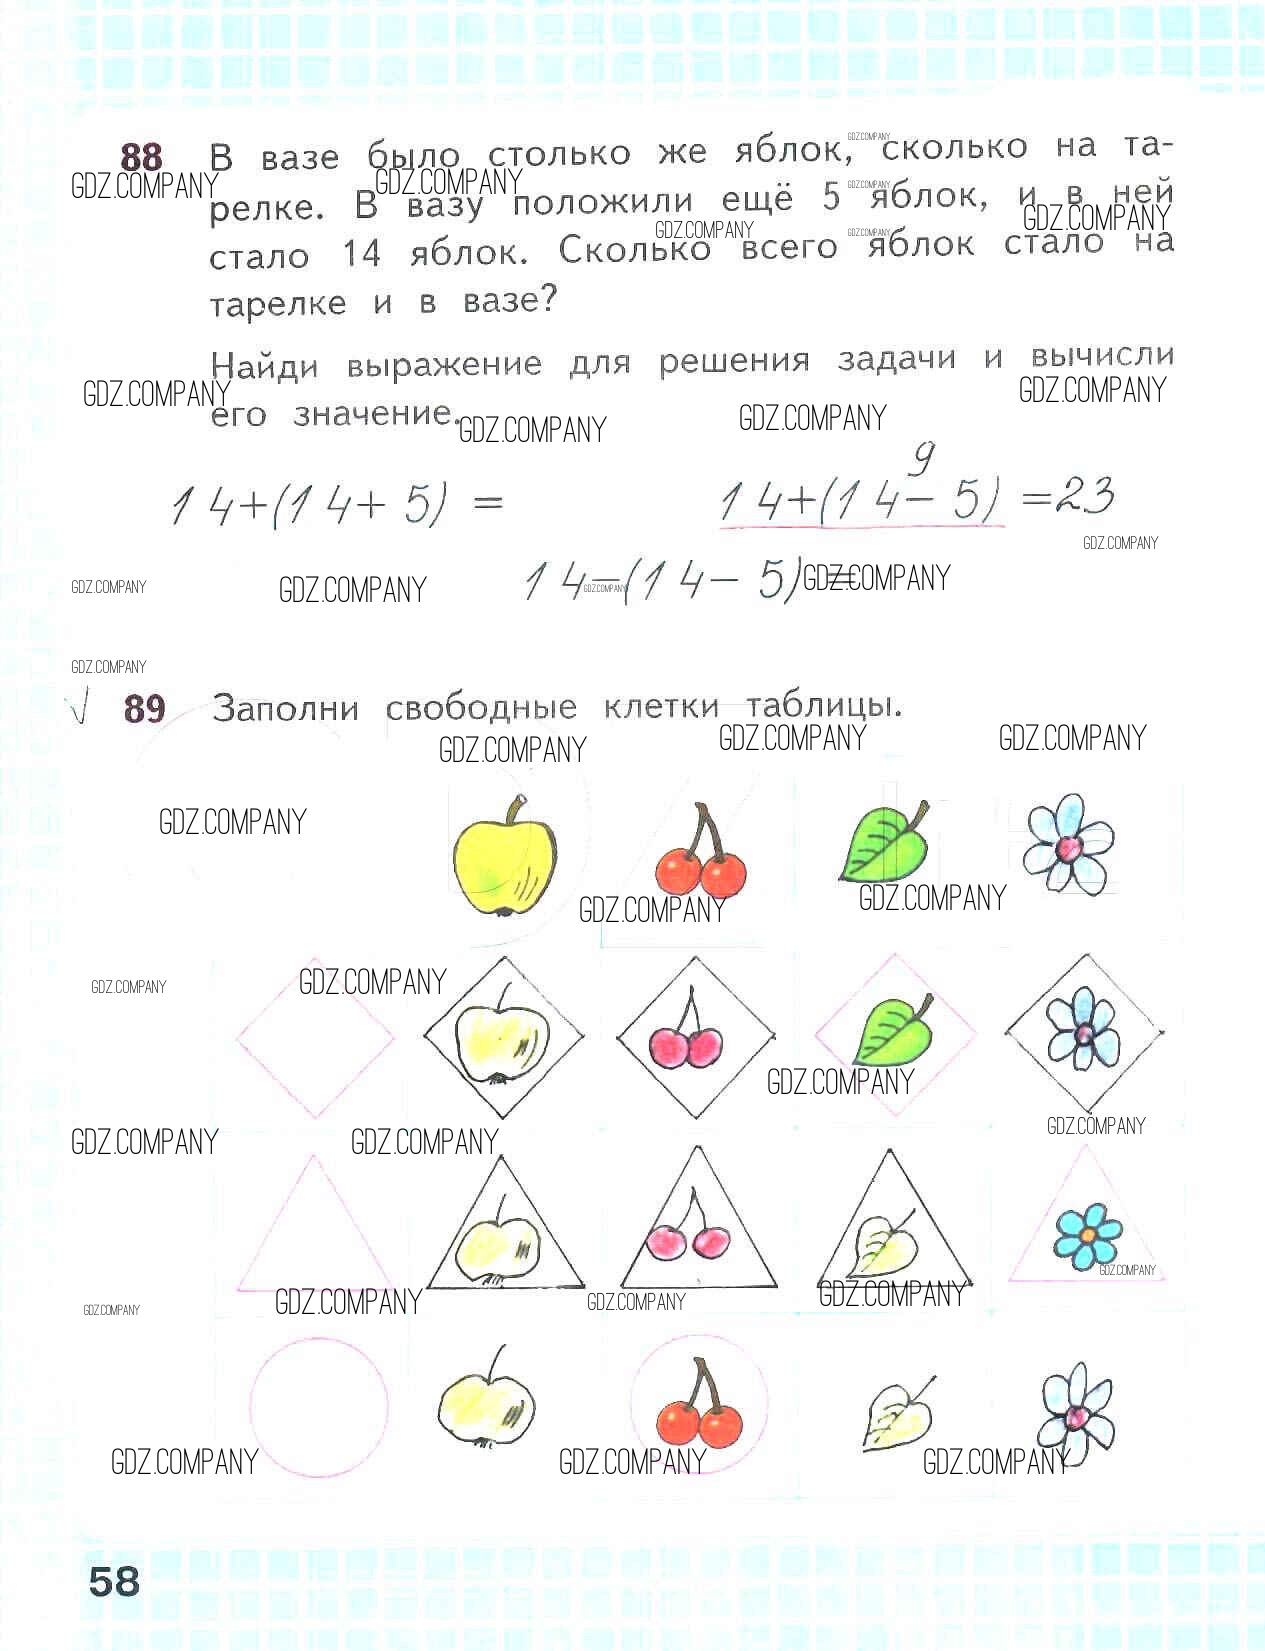 88 В вазе было столько же яблок, сколько на та-
релке. В вазу положили ещё 5 яблок, и в ней
стало 14 яблок. Сколько всего яблок стало на
тарелке и в вазе?
Найди выражение для решения задачи и вычисли
его значение.
9
14+(14+5)= 14+(14-5)=23
14-(14-5)=
√ 89 Заполни свободные клетки таблицы.
58
GDZ.COMPANY